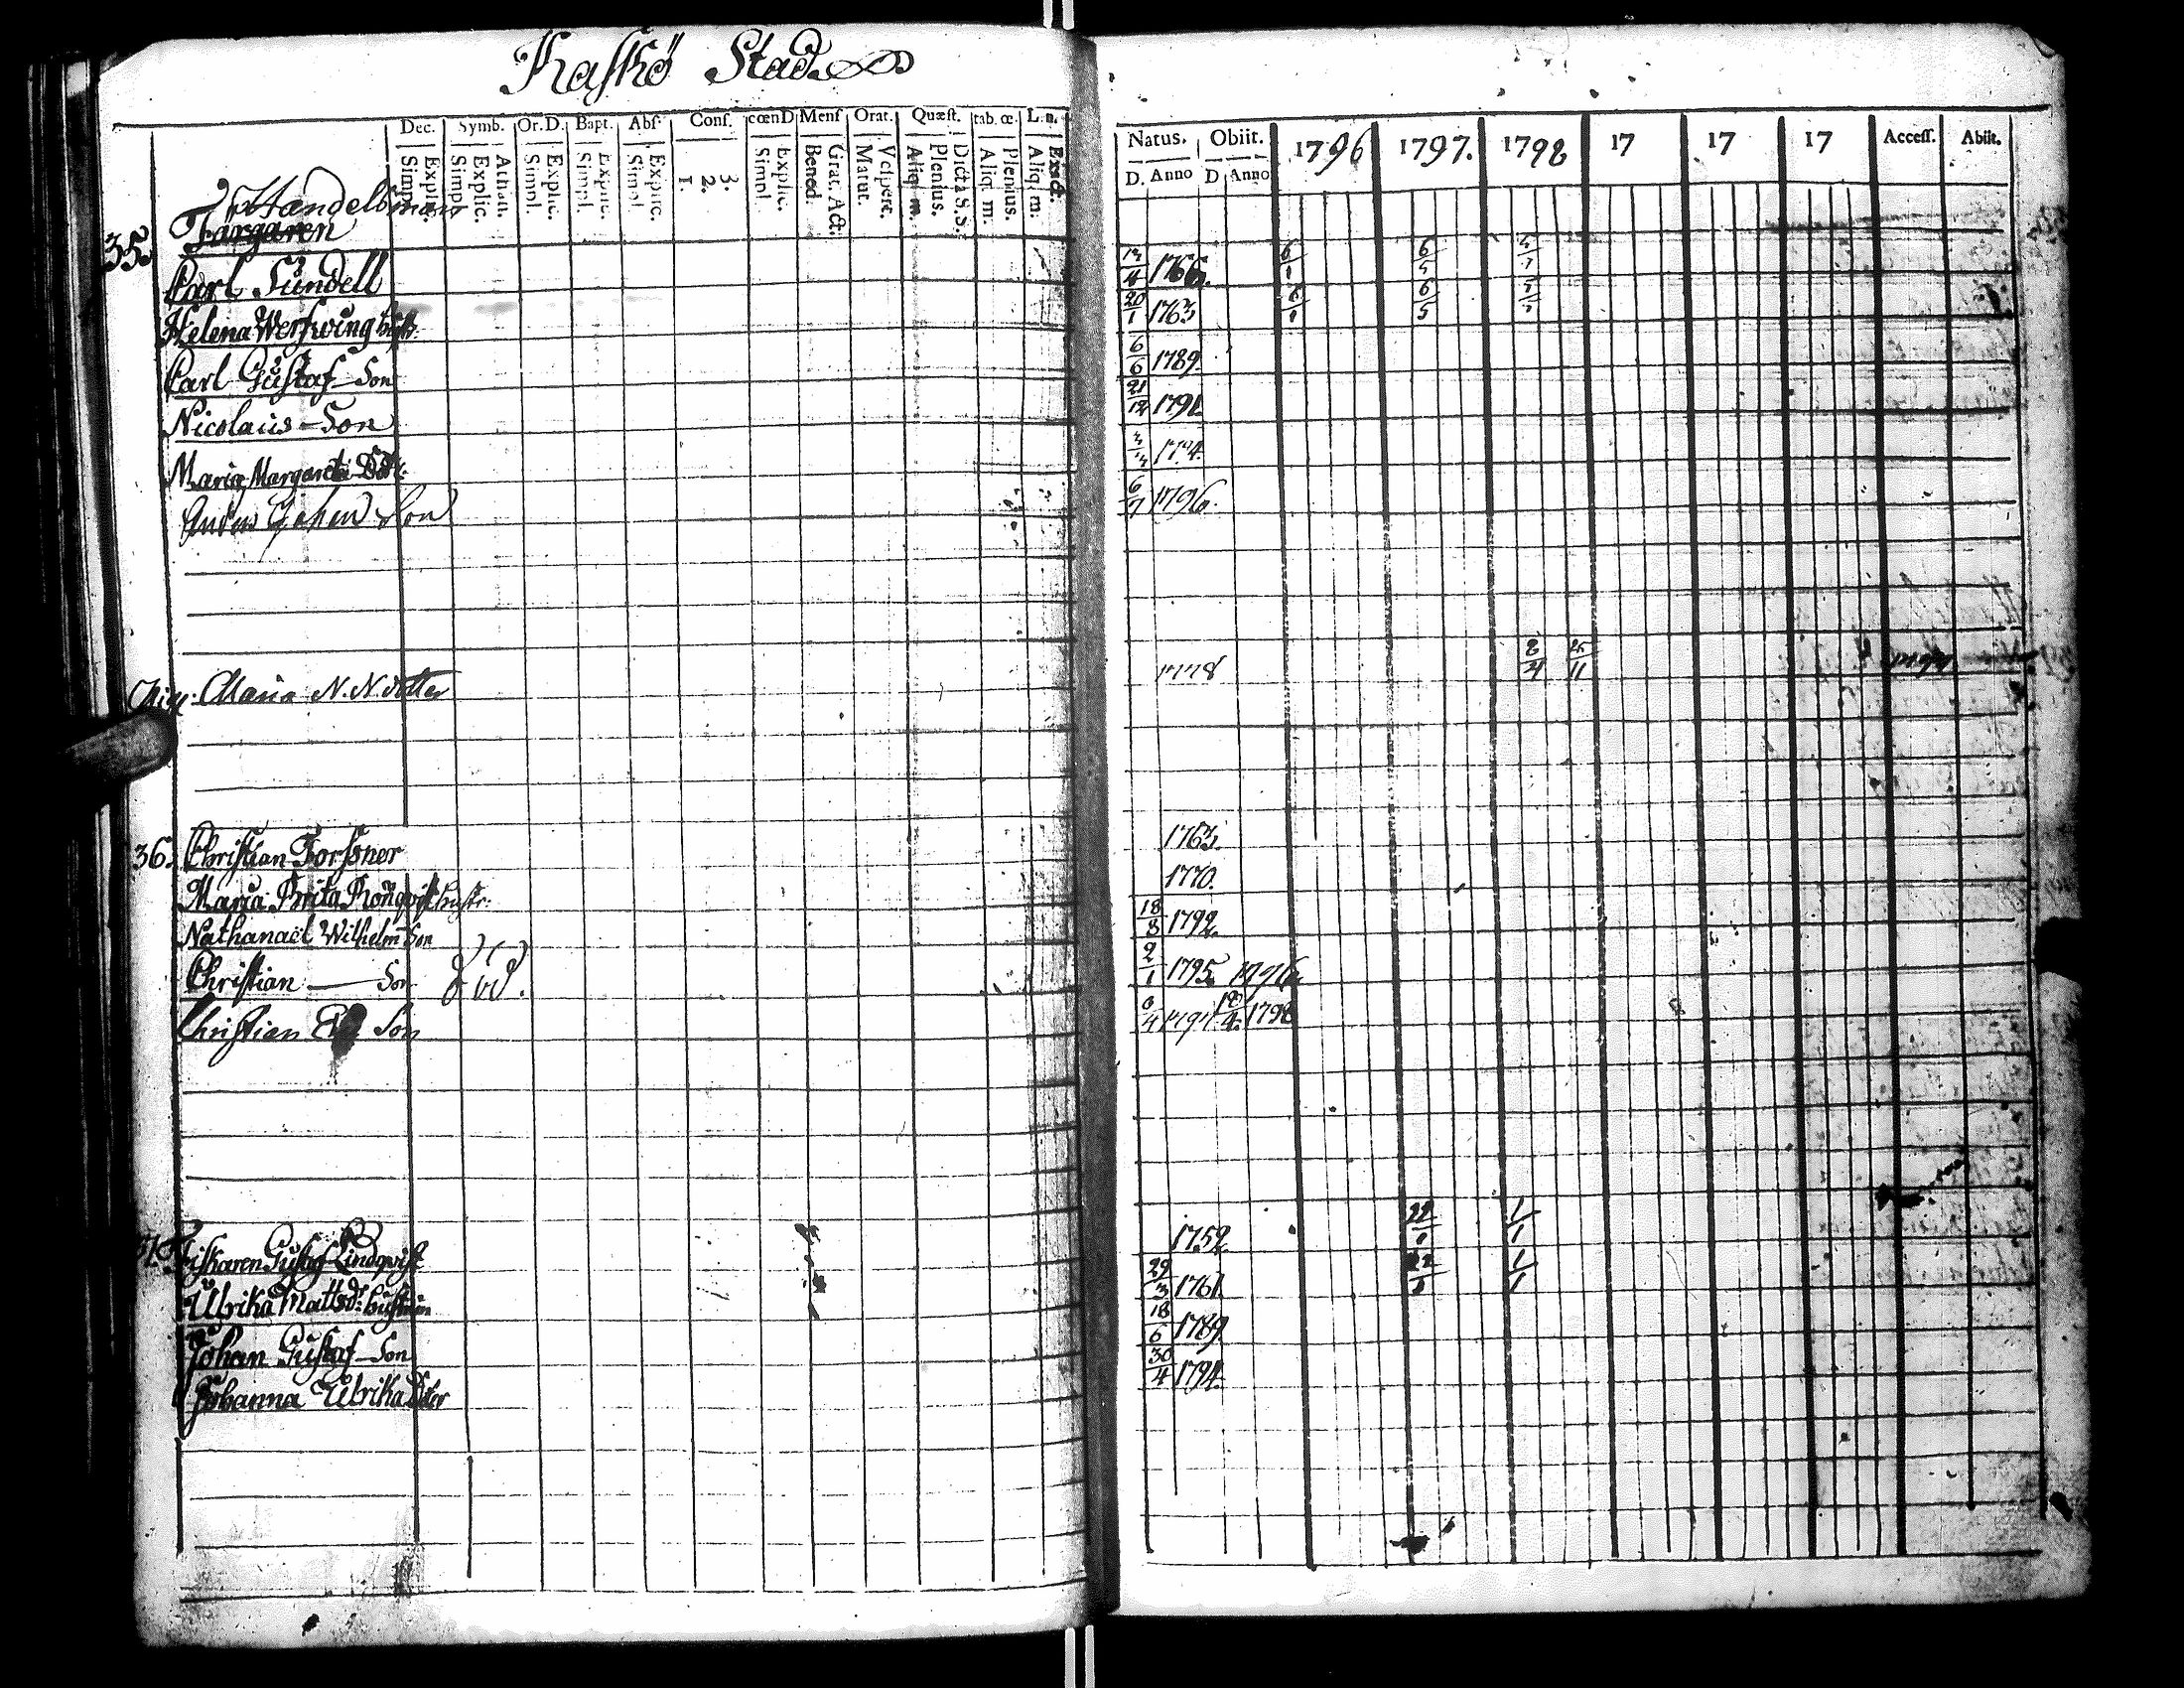 Kaskö Stad
Dec. Symb. Or.D. Bapt. Abs. Conf. cœnD Mens Orat. Quæst. tab. œ. Natus. Obiit. 1796 1797. 1798 17 17 17 Access. Abiit.
Simpl. Explic. Simpl. Explic. Athan. Simpl. Explic. Simpl. Explic. Simpl. Explic. 1. 2. 3. Simpl. Explic. Bened. Grat. Act. Matut. Vespert. Aliq. m. Plenius. Dicta S.S. Aliq. m. Plenius. Aliq. m. Exact. D. Anno D Anno
Handelsman
35. Färgaren
Carl Sundell 1766. 6/1 6/5
Helena Werfwing hustr. 20/1 1763 6/1 6/5
Carl Gustaf Son 6/6 1789.
Nicolaus Son 21/12 1791.
Maria Margareta Dotr. 1794.
Johan Son 6/7 1796.
Pig. Maria N. N. dotter 1778 2/4
36. Christian Forssner 1763.
Maria Brita Rönqvist hustr. 1770.
Nathanael Wilhelm Son 18/8 1792.
Christian Son död. 2/1 1795. 1796.
Christian Son 1797 1798
37. Fiskaren Gustaf Lindqvist 1752 22/1 1/1
Ulrika Mattsdr. hustrun 29/3 1761. 22/1 1/1
Johan Gustaf Son 18/6 1789.
Johanna Ulrika Dotter 30/4 1794.